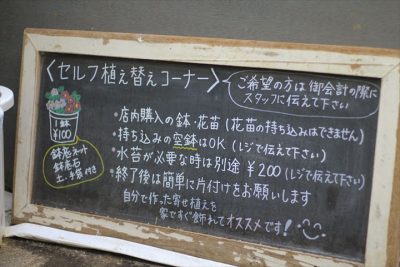 〈セルフ植え替えコーナー〉
ご希望の方は御会計の際に
スタッフに伝えて下さい
1鉢
¥100
鉢底ネット
鉢底石
土・手袋付き
・店内購入の鉢・花苗(花苗の持ち込みはできません)
・持ち込みの空鉢はOK(レジで伝えて下さい)
・水苔が必要な時は別途¥200(レジで伝えて下さい)
・終了後は簡単に片付けをお願いします
自分で作った寄せ植えを
家ですぐ飾れてオススメです!